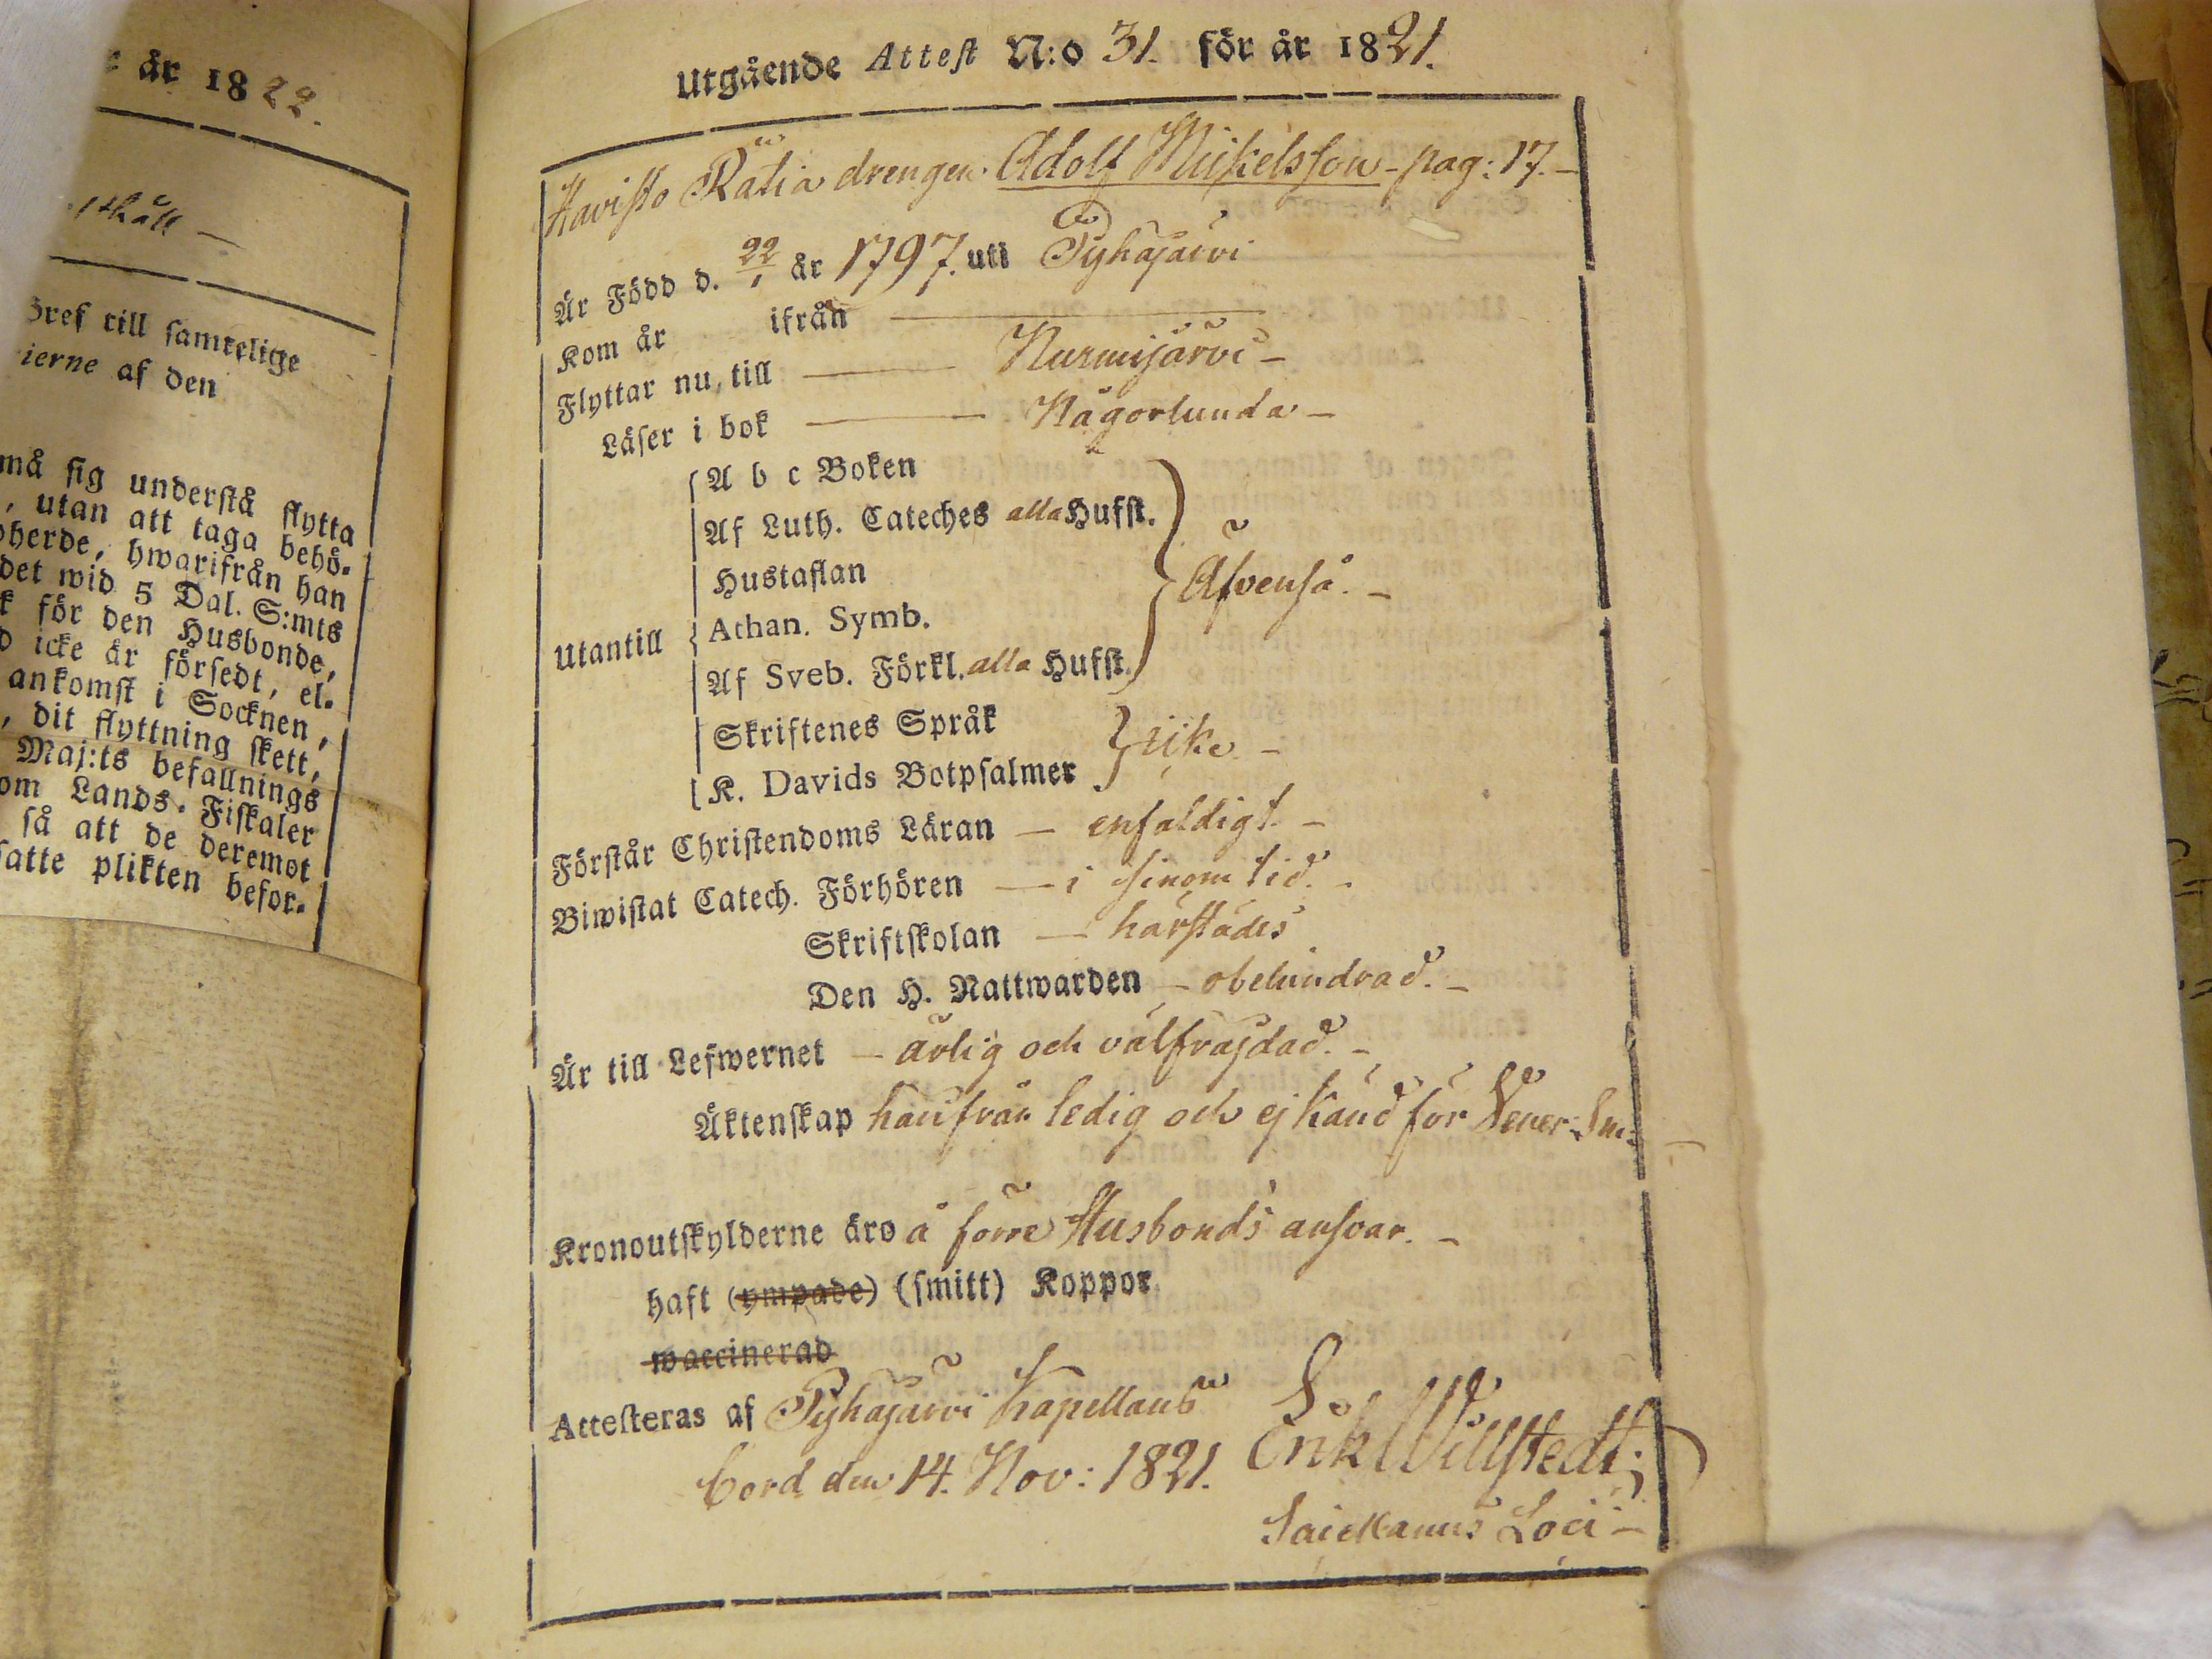 e år 1822.
sthåll —
Bref till samtelige
ierne af den
må sig understå flytta
, utan att taga behö-
herde, hwarifrån han
det wid 5 Dal. S:mts
k för den Husbonde,
d icke är försedt, el-
ankomst i Socknen,
, dit flyttning skett,
Maj:ts befallnings
om Lands-Fiskaler
så att de deremot
satte plikten befor-
Utgående Attest N:o 31. för år 1821.
Havisto Rätiä drengen Adolf Mickelsson - pag: 17. -
Är Född d. 22/1 år 1797. uti Pyhäjärvi
Kom år ifrån —
Flyttar nu till — Nurmijärvi -
Läser i bok — Någorlunda -
A b c Boken
Af Luth. Cateches alla Hufst.
Hustaflan
Äfvenså. -
Utantill
Athan. Symb.
Af Sveb. Förkl. alla Hufst.
Skriftenes Språk
icke -
K. Davids Botpsalmer
Förstår Christendoms Läran — enfaldigt. -
Biwistat Catech. Förhören — i sinom tid. -
Skriftskolan — härstädes
Den H. Nattwarden - obehindrad. -
Är till Lefwernet — ärlig och välfräjdad. -
Äktenskap härifrån ledig och ej känd för Vener. Sm: -
Kronoutskylderne äro å förre Husbonds ansvar. -
haft (ympade) (smitt) Koppor
waccinerad
Attesteras af Pyhäjärvi Kapellans
bord den 14. Nov: 1821. Er: Willstedt;
Sacellanus Loci -